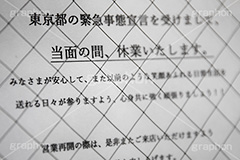 東京都の緊急事態宣言を受けまして、
当面の間、休業いたします。
みなさまが安心して、また以前のような笑顔あふれる日常生活を
送れる日々が参りますよう、心身共に強く頑張りましょう！！
営業再開の際は、是非またご来店いただけますよう